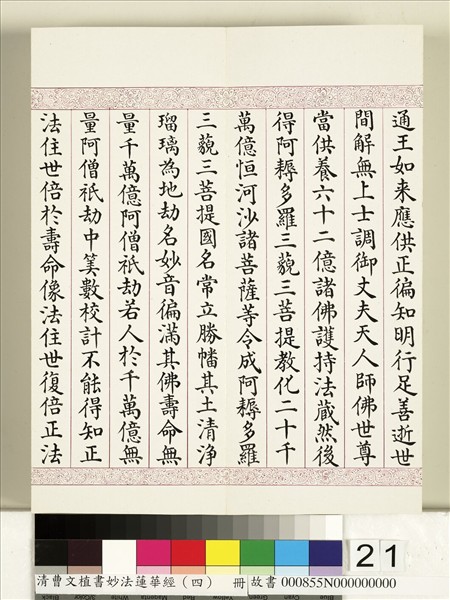 通王如来應供正徧知明行足善逝世
間解無上士調御丈夫天人師佛世尊
當供養六十二億諸佛護持法藏然後
得阿耨多羅三藐三菩提教化二十千
萬億恒河沙諸菩薩等令成阿耨多羅
三藐三菩提國名常立勝幡其土清淨
瑠璃為地劫名妙音徧滿其佛壽命無
量千萬億阿僧祇劫若人於千萬億無
量阿僧祇劫中筭數校計不能得知正
法住世倍於壽命像法住世復倍正法
21
清曹文植書妙法蓮華經（四） 冊 故書 000855N000000000